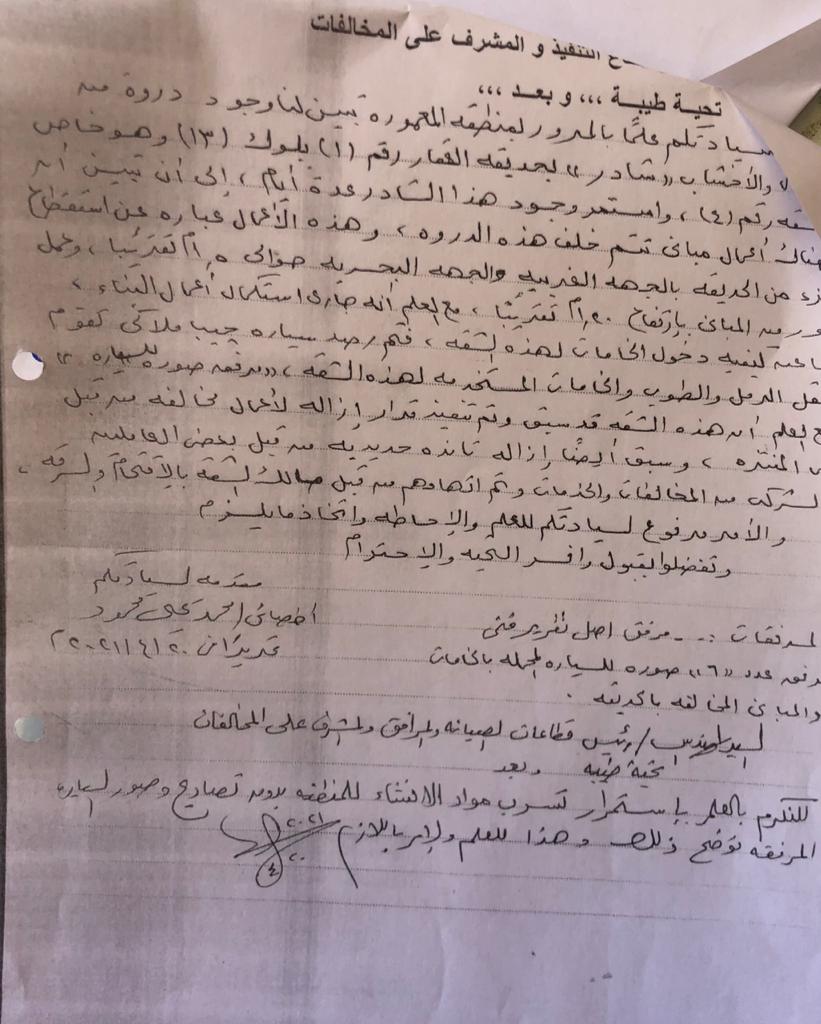 ح التنفيذ و المشرف على المخالفات
تحية طيبة ،،، و بعد ،،،
سيادتكم علمًا بالمرور لمنطقه المعموره تبين لنا وجود دروة من
والأخشاب "شادر" بحديقه العقار رقم (١) بلوك (١٣) وهو خاص
شقه رقم (٤) ، واستمر وجود هذا الشادر عدة أيام ، إلى أن تبين أن
هناك أعمال مبانى تتم خلف هذه الدروه ، وهذه الأعمال عباره عن استقطاع
زء من الحديقه بالجهه الغربيه والجهه البحريه حوالى تقريبًا ، وعمل
ور من المبانى بإرتفاع تقريبًا ، مع العلم أنه جارى استكمال أعمال البناء ،
لكيفيه دخول الخامات لهذه الشقه ، فتم رصد سياره چيب ملاكى تقوم
نقل الرمل والطوب والخامات المستخدمه لهذه الشقه ، "مرفق صوره للسياره"
ع العلم أن هذه الشقه قد سبق وتم تنفيذ قرار إزاله لأعمال مخالفه من قبل
المنتزه ، وسبق أيضًا إزاله تانده حديديه من قبل بعض العاملين
لشركه من المخالفات والخدمات وتم اتهامهم من قبل مالك الشقه بالاقتحام والسرقه ،
والأمر مرفوع لسيادتكم للعلم والإحاطه واتخاذ ما يلزم
وتفضلوا بقبول وافر التحيه والإحترام
مقدمه لسيادتكم
اخصائى / محمد على محمود
لمرفقات :- - مرفق اصل تقرير فنى
تحريرًا فى ٢٠ / ٤ / ٢٠٢١
رفق عدد "٦" صوره للسياره المحمله بالخامات
والمبانى المخالفه بالحديقه .
السيد المهندس / رئيس قطاعات الصيانه والمرافق والمشرف على المخالفات
تحية طيبه وبعد
للتكرم بالعلم بإستمرار تسرب مواد الانشاء للمنطقه بدون تصاريح وصور السياره
المرفقه توضح ذلك وهذا للعلم والامر باللازم